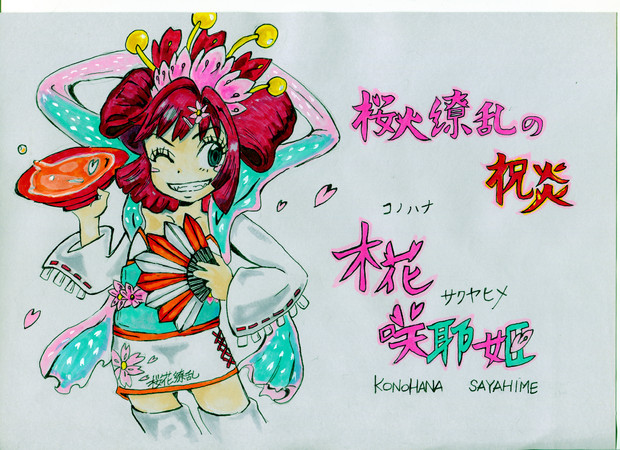 桜火繚乱の
祝炎
コノハナ
木花
サクヤヒメ
咲耶姫
KONOHANA SAYAHIME
桜花繚乱